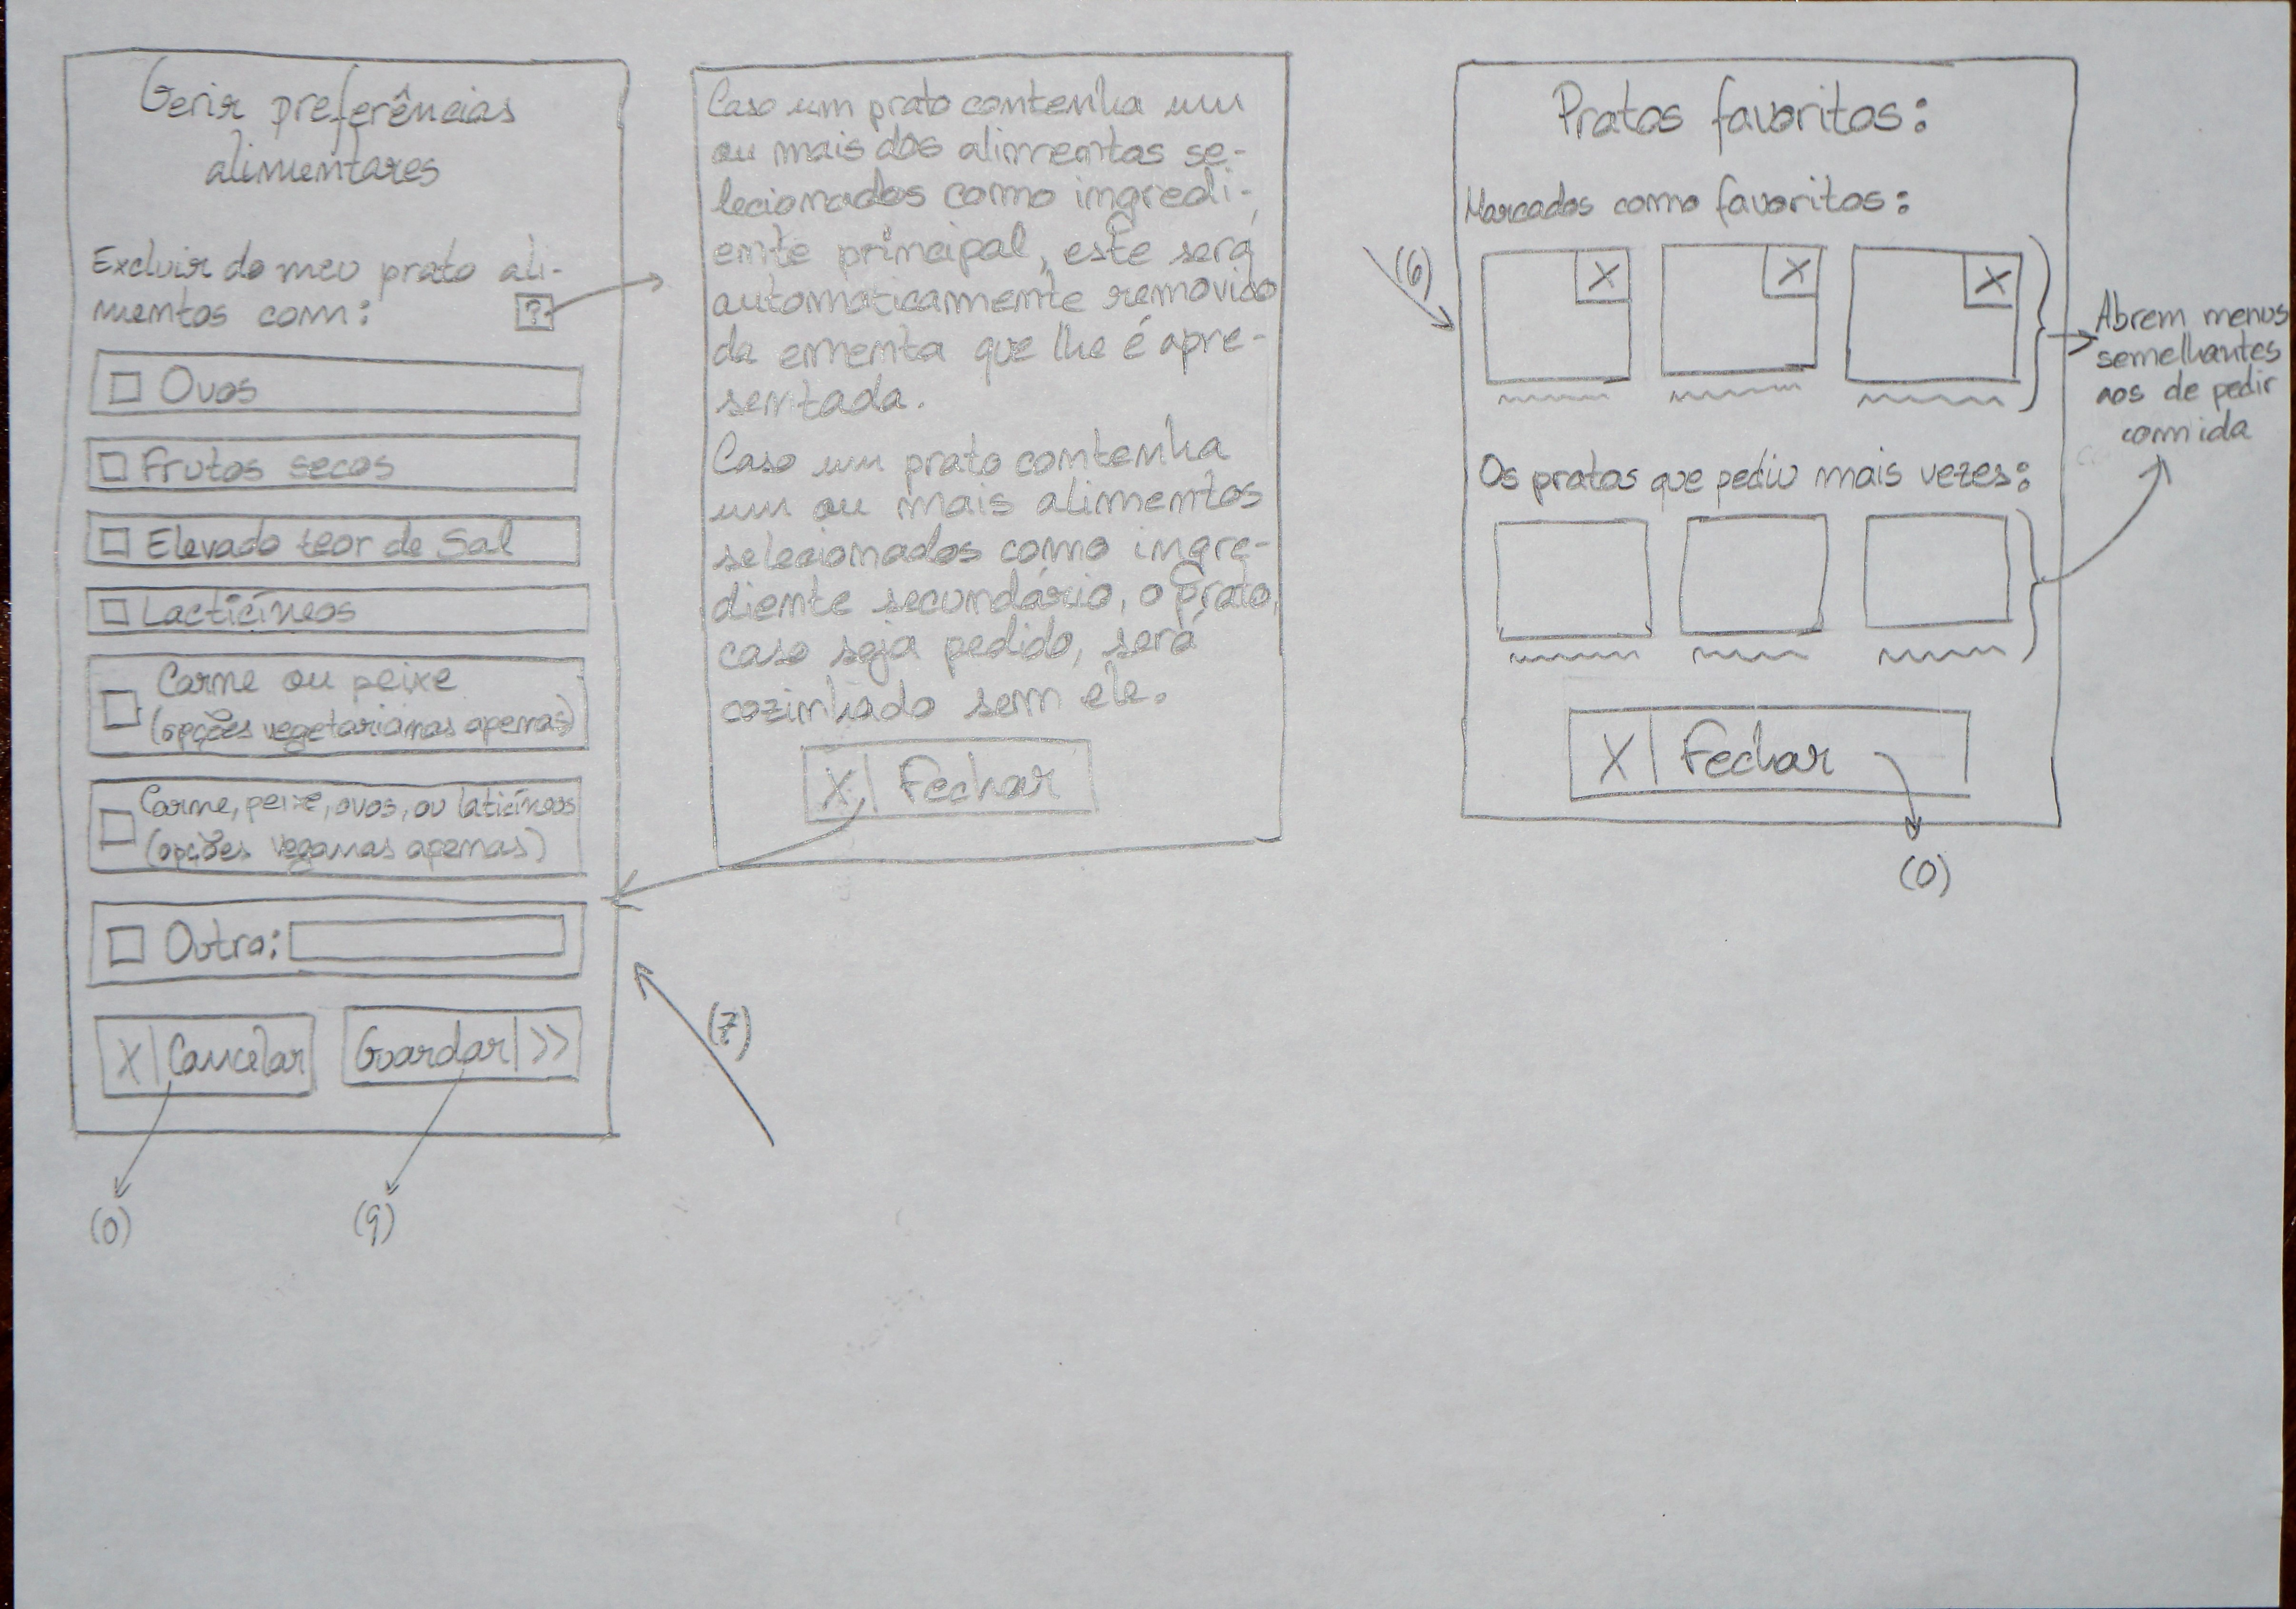 Gerir preferências
alimentares
Excluir do meu prato ali-
mentos com:
?
Ovos
Frutos secos
Elevado teor de Sal
Lacticíneos
Carne ou peixe
(opções vegetarianas apenas)
Carne, peixe, ovos, ou laticíneos
(opções veganas apenas)
Outra:
X| Cancelar
Guardar| >>
(0)
(9)
(7)
Caso um prato contenha um
ou mais dos alimentos se-
lecionados como ingredi-
ente principal, este será
automaticamente removido
da ementa que lhe é apre-
sentada.
Caso um prato contenha
um ou mais alimentos
selecionados como ingre-
diente secundário, o prato,
caso seja pedido, será
cozinhado sem ele.
X| Fechar
(6)
Pratos favoritos:
Marcados como favoritos:
X
X
X
Abrem menus
semelhantes
aos de pedir
comida
Os pratos que pediu mais vezes:
X| Fechar
(0)